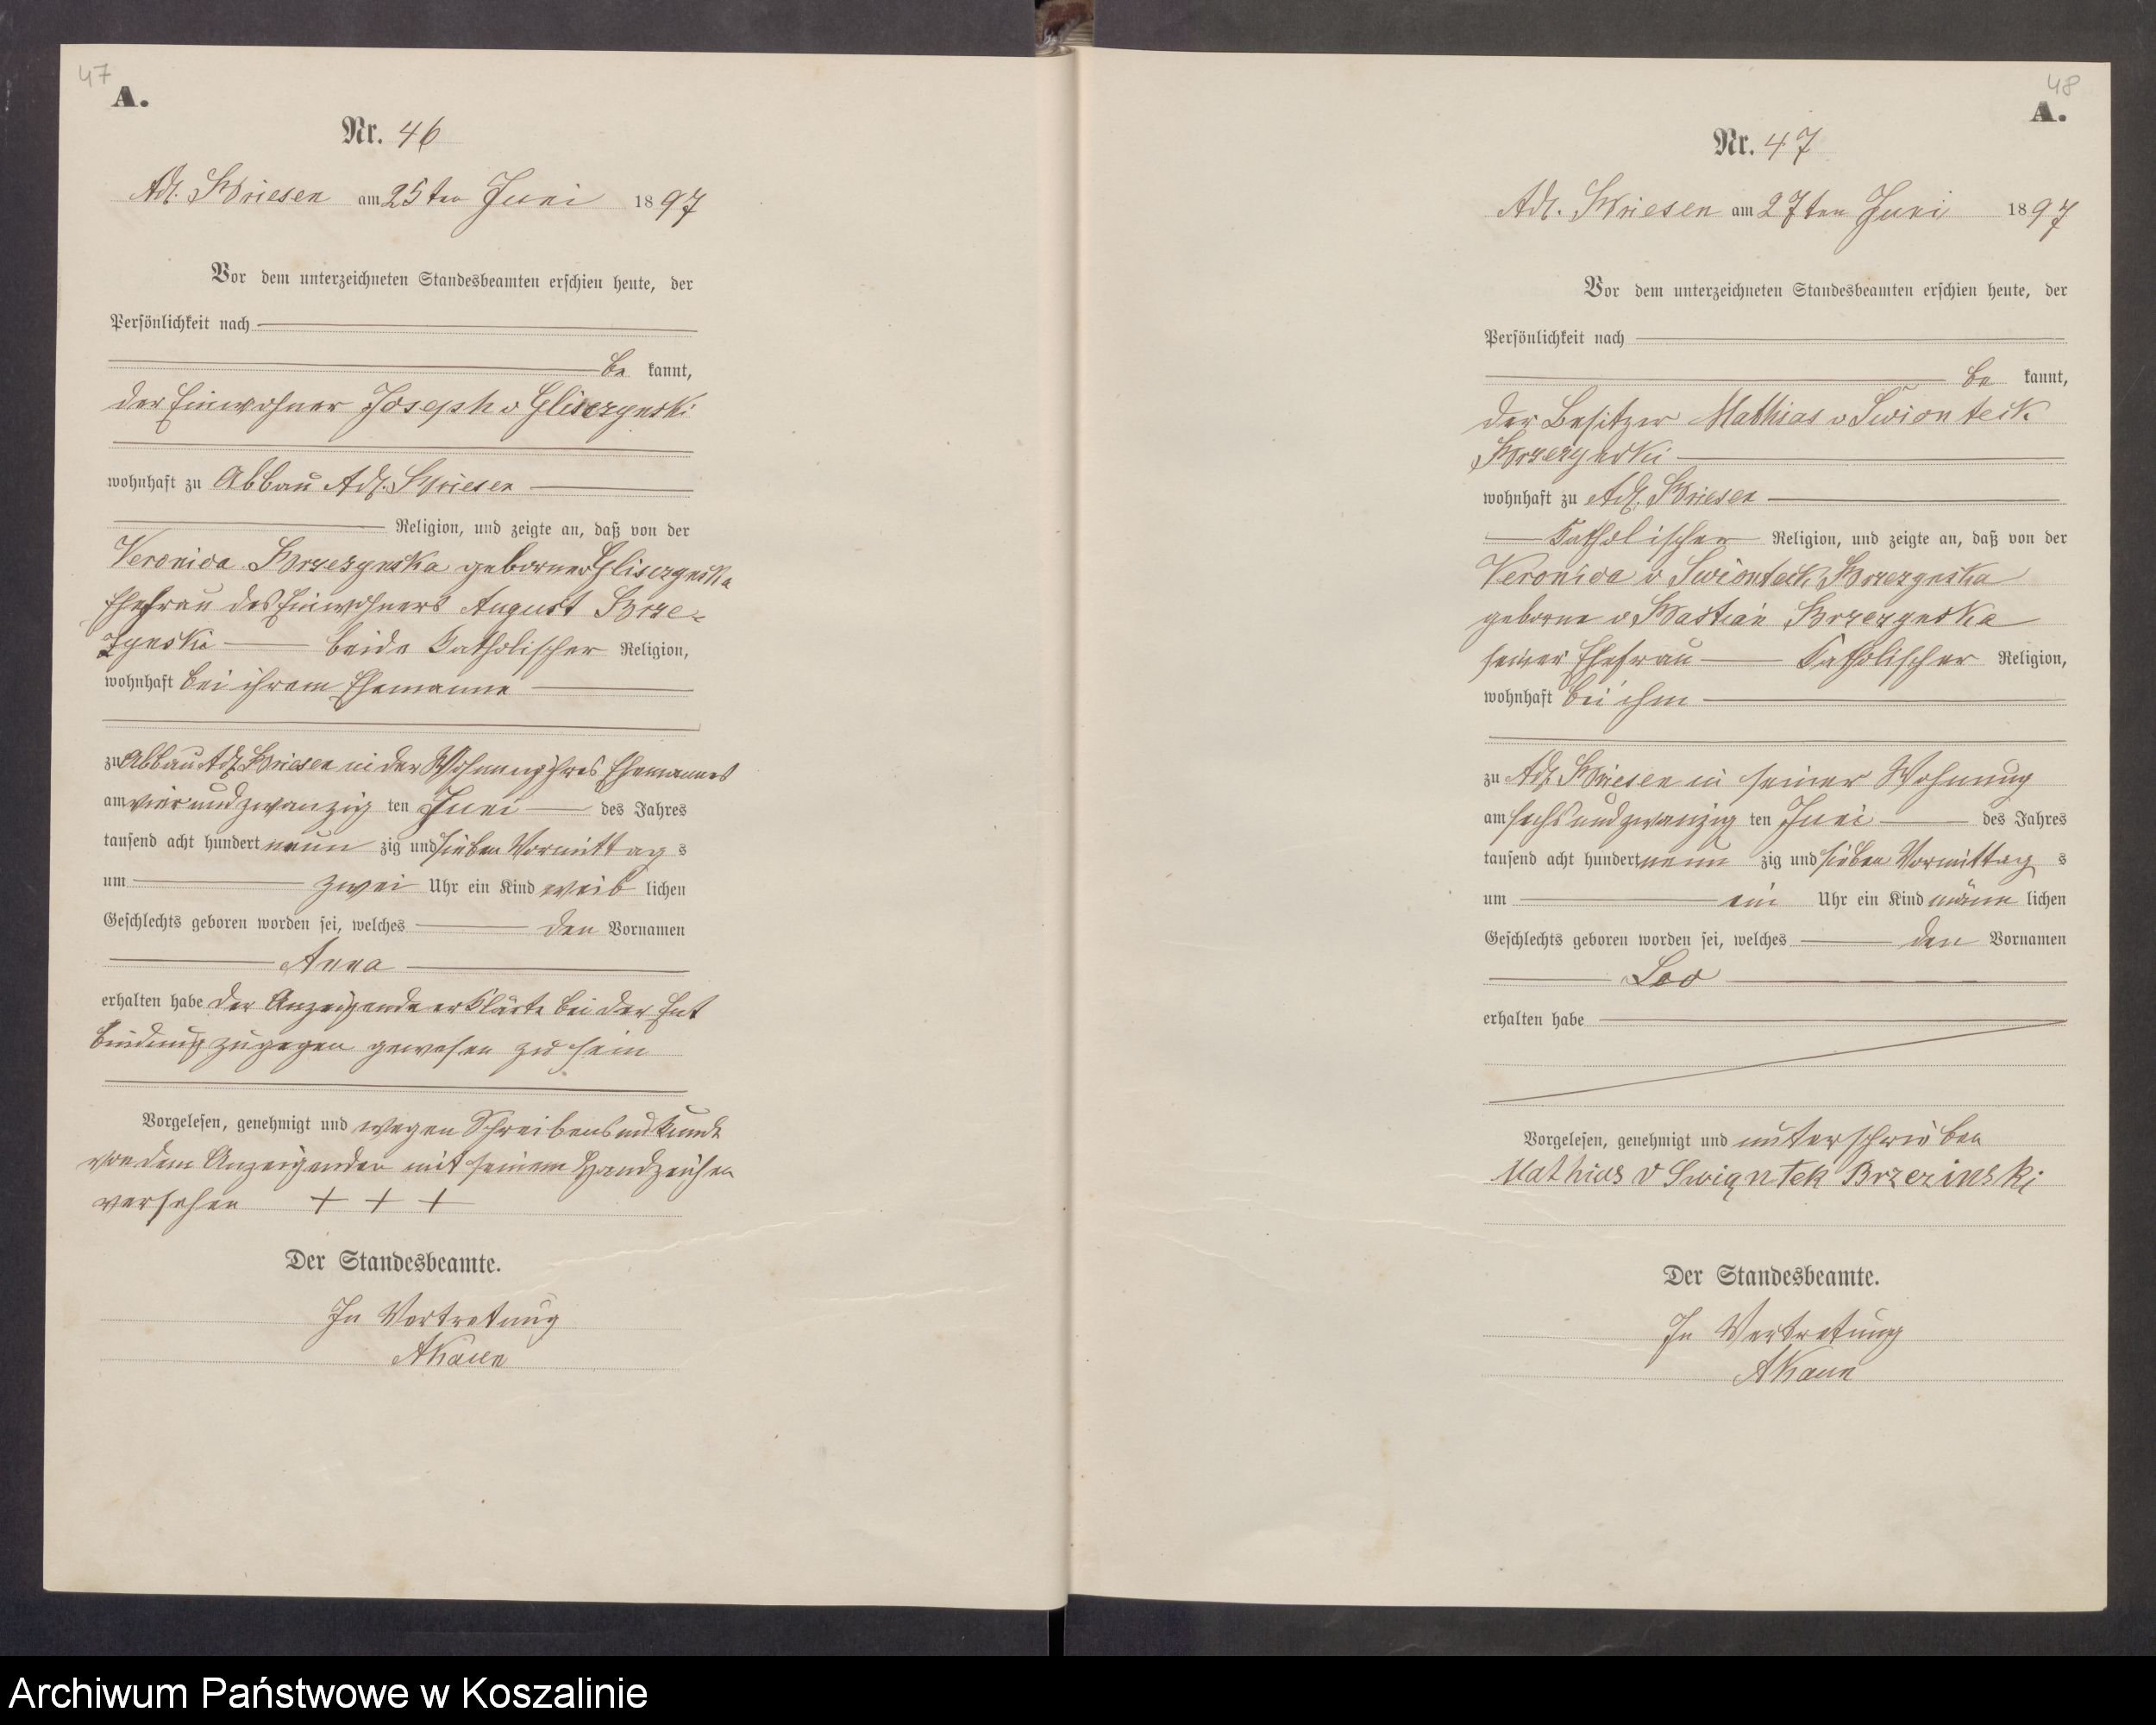 47
A.
Nr. 46
Adl. Briesen am 25ten Juni 1897
Vor dem unterzeichneten Standesbeamten erschien heute, der
Persönlichkeit nach
be kannt,
der Einwohner Joseph v Gliszynski
wohnhaft zu Abbau Adl. Briesen
Religion, und zeigte an, daß von der
Veronica Brzezynska geborner Gliszynska
Ehefrau des Einwohners August Brze-
zynski beide Katholischer Religion,
wohnhaft bei ihrem Ehemanne
zu Abbau Adl. Briesen in der Wohnung ihres Ehemannes
am vier und zwanzig ten Juni des Jahres
tausend acht hundert neun zig und sieben Vormittag s
um zwei Uhr ein Kind weib lichen
Geschlechts geboren worden sei, welches den Vornamen
Anna
erhalten habe der Anzeigende erklärte bei der Ent
bindung zugegen gewesen zu sein
Vorgelesen, genehmigt und wegen Schreibensunkunde
von dem Anzeigenden mit seinem Handzeichen
versehen + + +
Der Standesbeamte.
In Vertretung
48
A.
Nr. 47
Adl. Briesen am 27ten Juni 1897
Vor dem unterzeichneten Standesbeamten erschien heute, der
Persönlichkeit nach
be kannt,
der Besitzer Mathias v Swionteck
Brzezynski
wohnhaft zu Adl. Briesen
Katholischer Religion, und zeigte an, daß von der
Veronica v Swionteck Brzezynska
geborne v Brzezynska
seiner Ehefrau Katholischer Religion,
wohnhaft bei ihm
zu Adl. Briesen in seiner Wohnung
am sechs und zwanzig ten Juni des Jahres
tausend acht hundert neun zig und sieben Vormittag s
um ein Uhr ein Kind männ lichen
Geschlechts geboren worden sei, welches den Vornamen
Leo
erhalten habe
Vorgelesen, genehmigt und unterschrieben
Mathias v Swiąntek Brzezinski
Der Standesbeamte.
In Vertretung
Archiwum Państwowe w Koszalinie